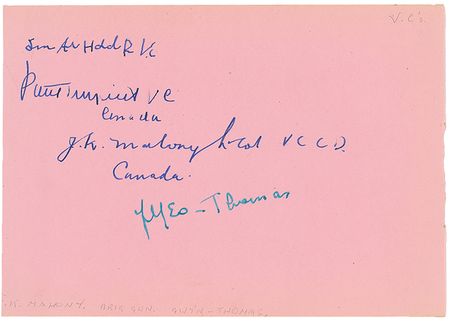 V.C's.
V.C
Paul Triquet VC
Canada
J.K. Mahony Lt-Col V C C D.
Canada.
Yeo-Thomas
.K. MAHONY. BRIG GEN. GWYN-THOMAS.